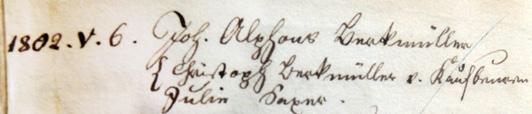 1802. V. 6. Joh. Alphons Berkmüller
{ Christoph Berkmüller v. Kaufbeuren
Julie Saxer.